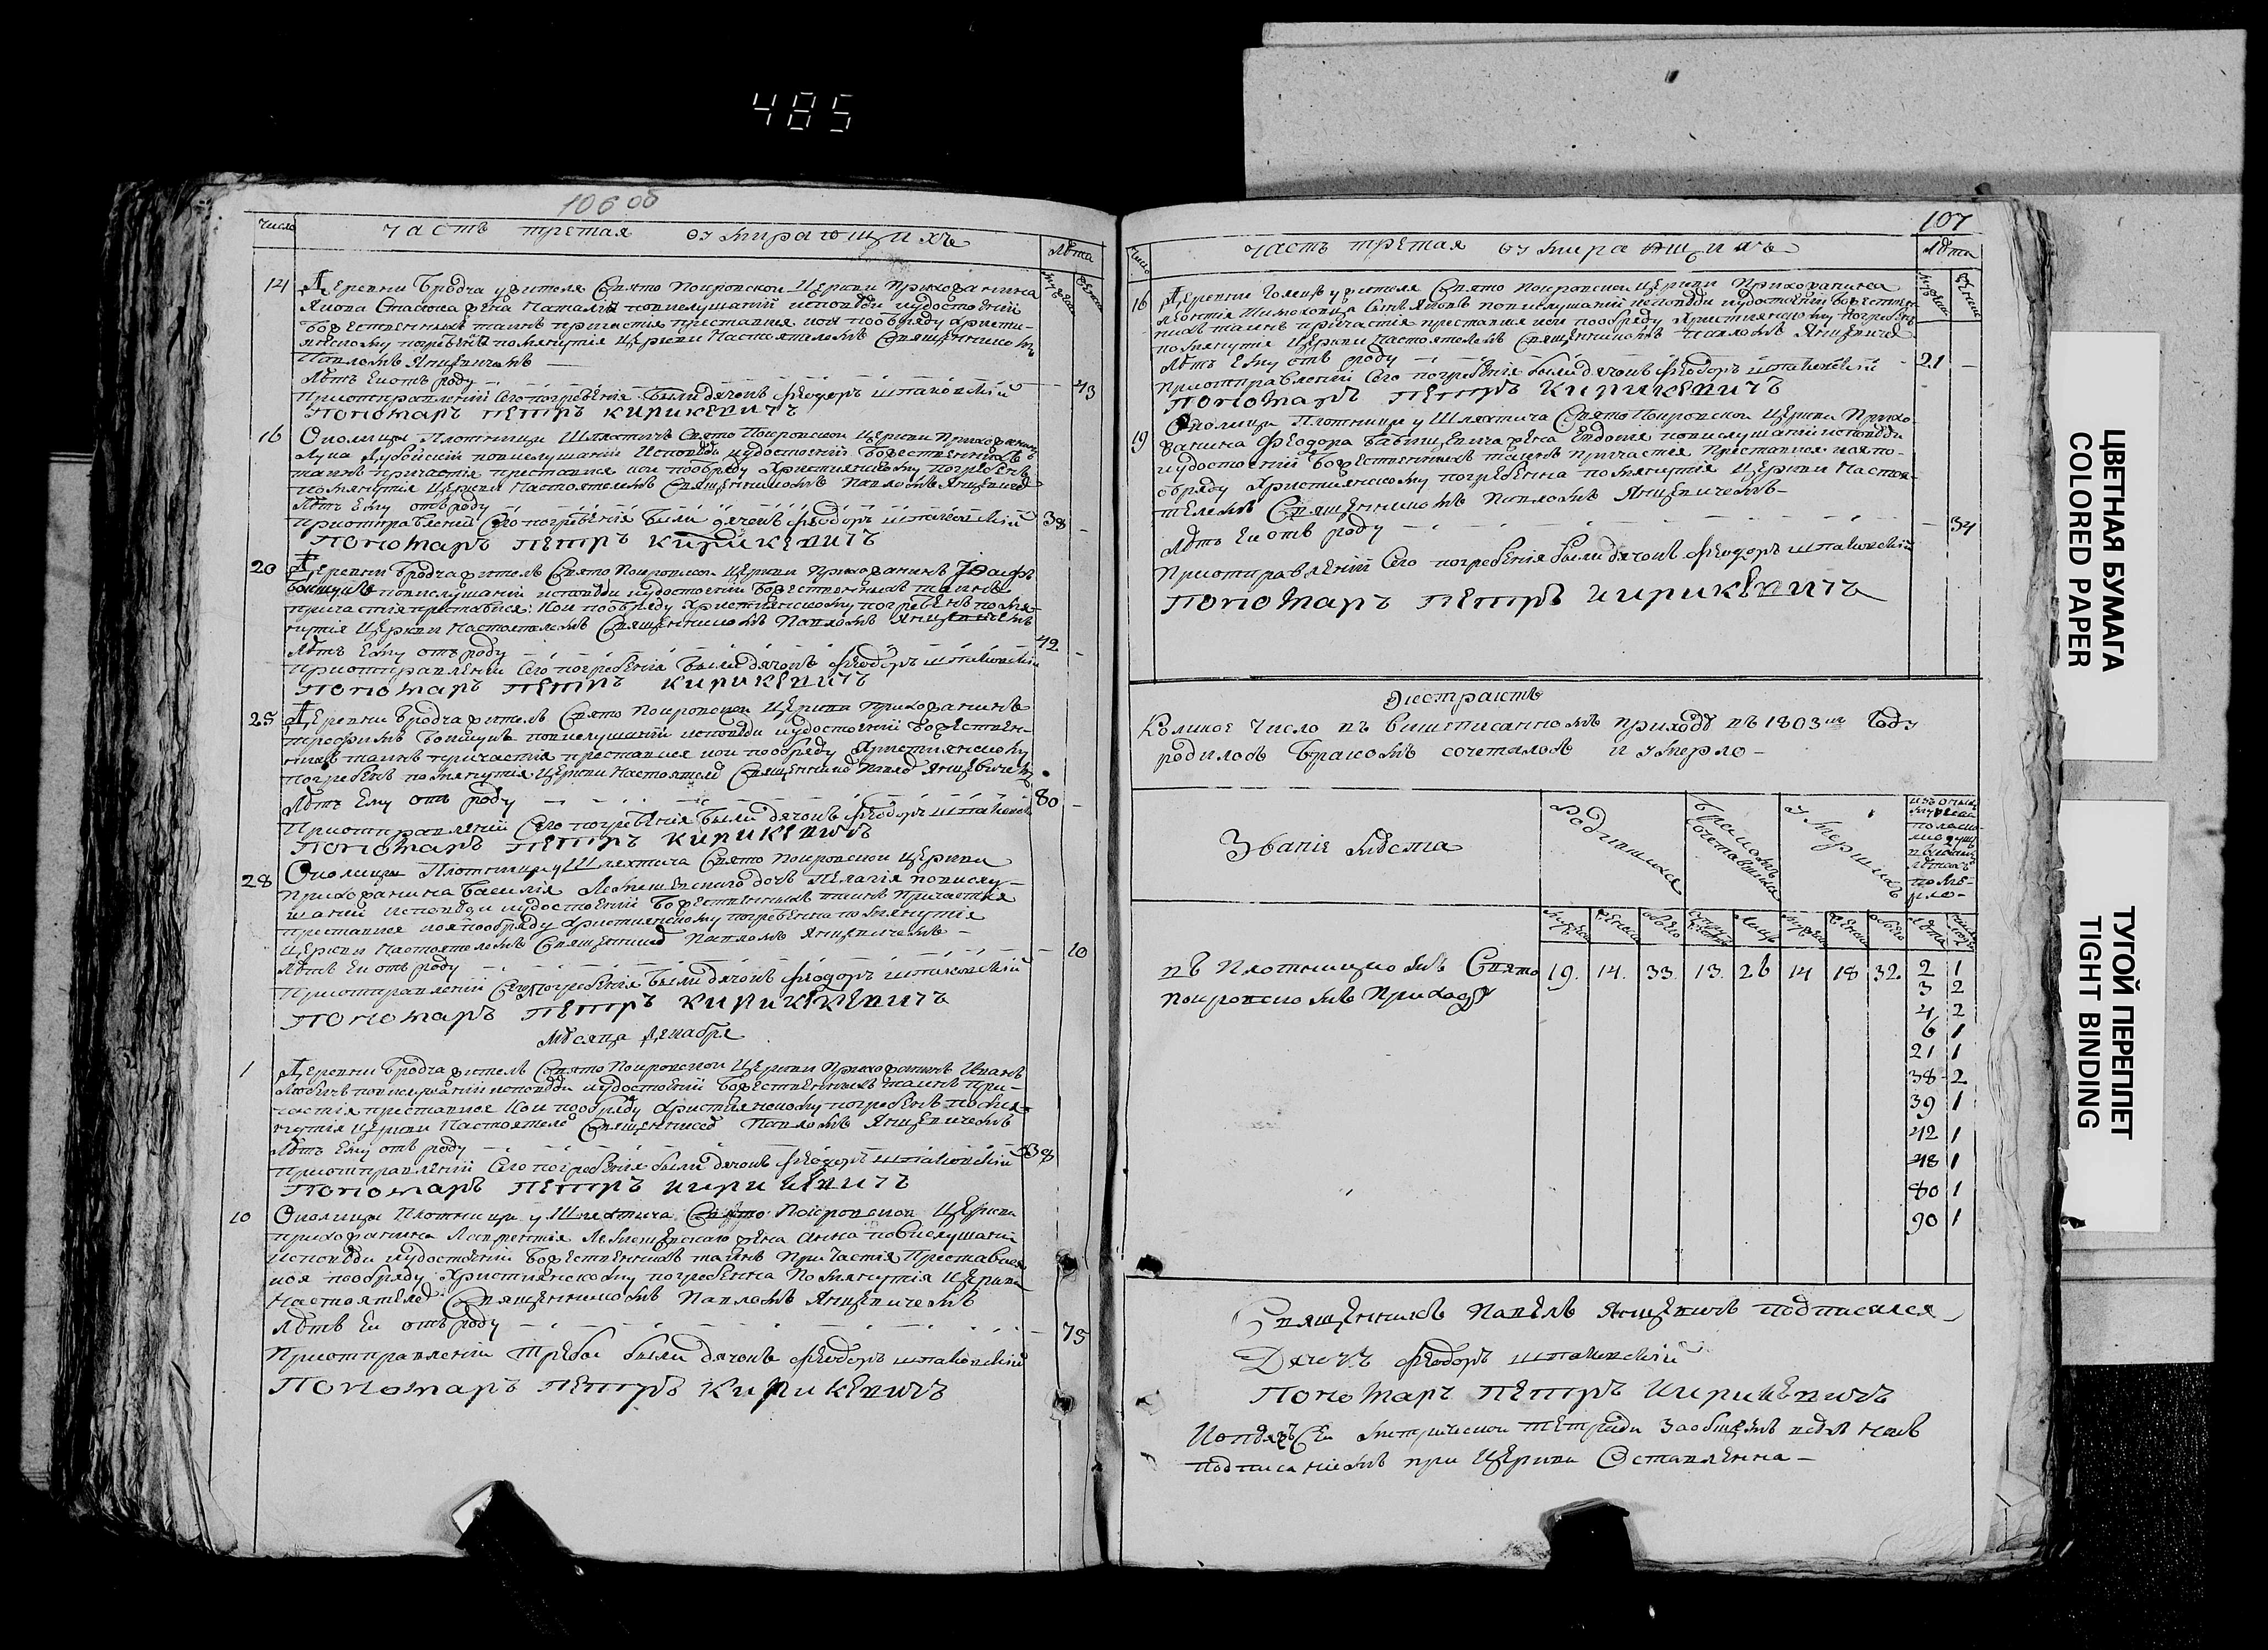 485
106 об
Число
Часть третая о умирающихъ
Лѣта
14
Деревни Бродча жителя Свято Покровской Церкви Прихожанина
Якова жена Наталия повислушаній исповѣди иудостоеній
Божественныхъ таинъ причастія преставися коя пообряду христи-
янскому погребенна помянутія Церкви Настоятелемъ Священникомъ
Павломъ Янцевичемъ
Лѣтъ Ей отъ роду
43
Приотправленій Сего погребенія были дячокъ Феодоръ Шпаковскій
Пономаръ Петръ Кирикевичъ
16
Околицы Плотницы Шляхтичъ Свято Покровской Церкви Прихожанинъ
Лука Дубойскій повислушаній Исповѣди иудостоеній Божественныхъ
таинъ причастія преставися кои пообряду Християнскому погребенъ
помянутія Церкви Настоятелемъ Священникомъ Павломъ Янцевичемъ
Лѣтъ Ему отъ роду
38
Приотправленій Сего погребенія были дячокъ Феодоръ Шпаковскій
Пономаръ Петръ Кирикевичъ
20
Деревни Бродча житель Свято Покровской Церкви Прихожанинъ
повислушаній исповѣди иудостоеній Божественныхъ таинъ
причастія преставися Кои пообряду Християнскому погребенъ помя-
нутія Церкви Настоятелемъ Священникомъ Павломъ Янцевичемъ
Лѣтъ Ему отъ роду
42
Приотправленіи Сего погребенія были дячокъ Феодоръ Шпаковскій
Пономаръ Петръ Кирикевичъ
25
Деревни Бродча житель Свято Покровской Церкви прихожанинъ
Трофимъ повислушаній исповѣди иудостоеній Божествен-
ныхъ таинъ причастія преставися кои пообряду Християнскому
погребенъ помянутія Церкви Настоятелемъ Священникомъ Павломъ Янцевичемъ
Лѣтъ Ему отъ роду
80
Приотправленій Сего погребенія были дячокъ Феодоръ Шпаковскій
Пономаръ Петръ Кирикевичъ
28
Околицы Плотницы у Шляхтича Свято Покровской Церкви
Прихожанина Василія дочь Пелагія повислу-
шаній исповѣди иудостоеній Божественныхъ таинъ Причастія
преставися коя пообряду Християнскому погребенна помянутія
Церкви Настоятелемъ Священникомъ Павломъ Янцевичемъ
Лѣтъ Ей отъ роду
10
Приотправленій Сего погребенія были дячокъ Феодоръ Шпаковскій
Пономаръ Петръ Кирикевичъ
Мѣсяца Декабря
1
Деревни Бродча житель Свято Покровской Церкви Прихожанинъ Иванъ
повислушаній исповѣди иудостоеній Божественныхъ таинъ при-
частія преставися Кои пообряду Християнскому погребенъ помя-
нутія Церкви Настоятелемъ Священникомъ Павломъ Янцевичемъ
Лѣтъ Ему отъ роду
38
Приотправленій Сего погребенія были дячокъ Феодоръ Шпаковскій
Пономаръ Петръ Кирикевичъ
10
Околицы Плотницы у Шляхтича Свято Покровской Церкви
прихожанина Лаврентія жена Анна повислушаній
исповѣди иудостоеній Божественныхъ таинъ Причастія Преставися
коя пообряду Християнскому погребенна Помянутія Церкви
Настоятелемъ Священникомъ Павломъ Янцевичемъ
Лѣтъ Ей отъ роду
75
Приотправленій требы были дячокъ Феодоръ Шпаковскій
Пономаръ Петръ Кирикевичъ
107
Число
Часть третая о умирающихъ
Лѣта
16
Деревни жителя Свято Покровской Церкви Прихожанина
Леонтія Сынъ Яковъ повислушаній исповѣди иудостоеній Божествен-
ныхъ таинъ причастія преставися кои пообряду Християнскому погребенъ
помянутія Церкви Настоятелемъ Священникомъ Павломъ Янцевичемъ
Лѣтъ Ему отъ роду
21
Приотправленій Сего погребенія были дячокъ Феодоръ Шпаковскій
Пономаръ Петръ Кирикевичъ
19
Околицы Плотницы у Шляхтича Свято Покровской Церкви Прихо-
жанина Феодора жена Евдокія повислушаній исповѣди
иудостоеній Божественныхъ таинъ причастія Преставися коя по-
обряду Християнскому погребенна помянутія Церкви Настоя-
телемъ Священникомъ Павломъ Янцевичемъ
Лѣтъ Ей отъ роду
34
Приотправленій Сего погребенія были дячокъ Феодоръ Шпаковскій
Пономаръ Петръ Кирикевичъ
Экстрактъ
Коликое Число въ вишписанномъ приходѣ въ 1803мъ Году
родилось Бракомъ сочеталось и умерло
Званіе мѣста
Родившихся
Бракомъ сочетавшихся
Умершихъ
въ Плотницкомъ Свято
Покровскомъ Приходѣ
19. 14. 33. 13. 26 14 18 32.
2 1
3 2
4 2
6 1
21 1
38 2
39 1
42 1
48 1
80 1
90 1
Священникъ Павелъ Янцевичъ подписался
Дячокъ Феодоръ Шпаковскій
Пономаръ Петръ Кирикевичъ
Подписаніемъ при Церкви Оставленна
ЦВЕТНАЯ БУМАГА
COLORED PAPER
ТУГОЙ ПЕРЕПЛЕТ
TIGHT BINDING